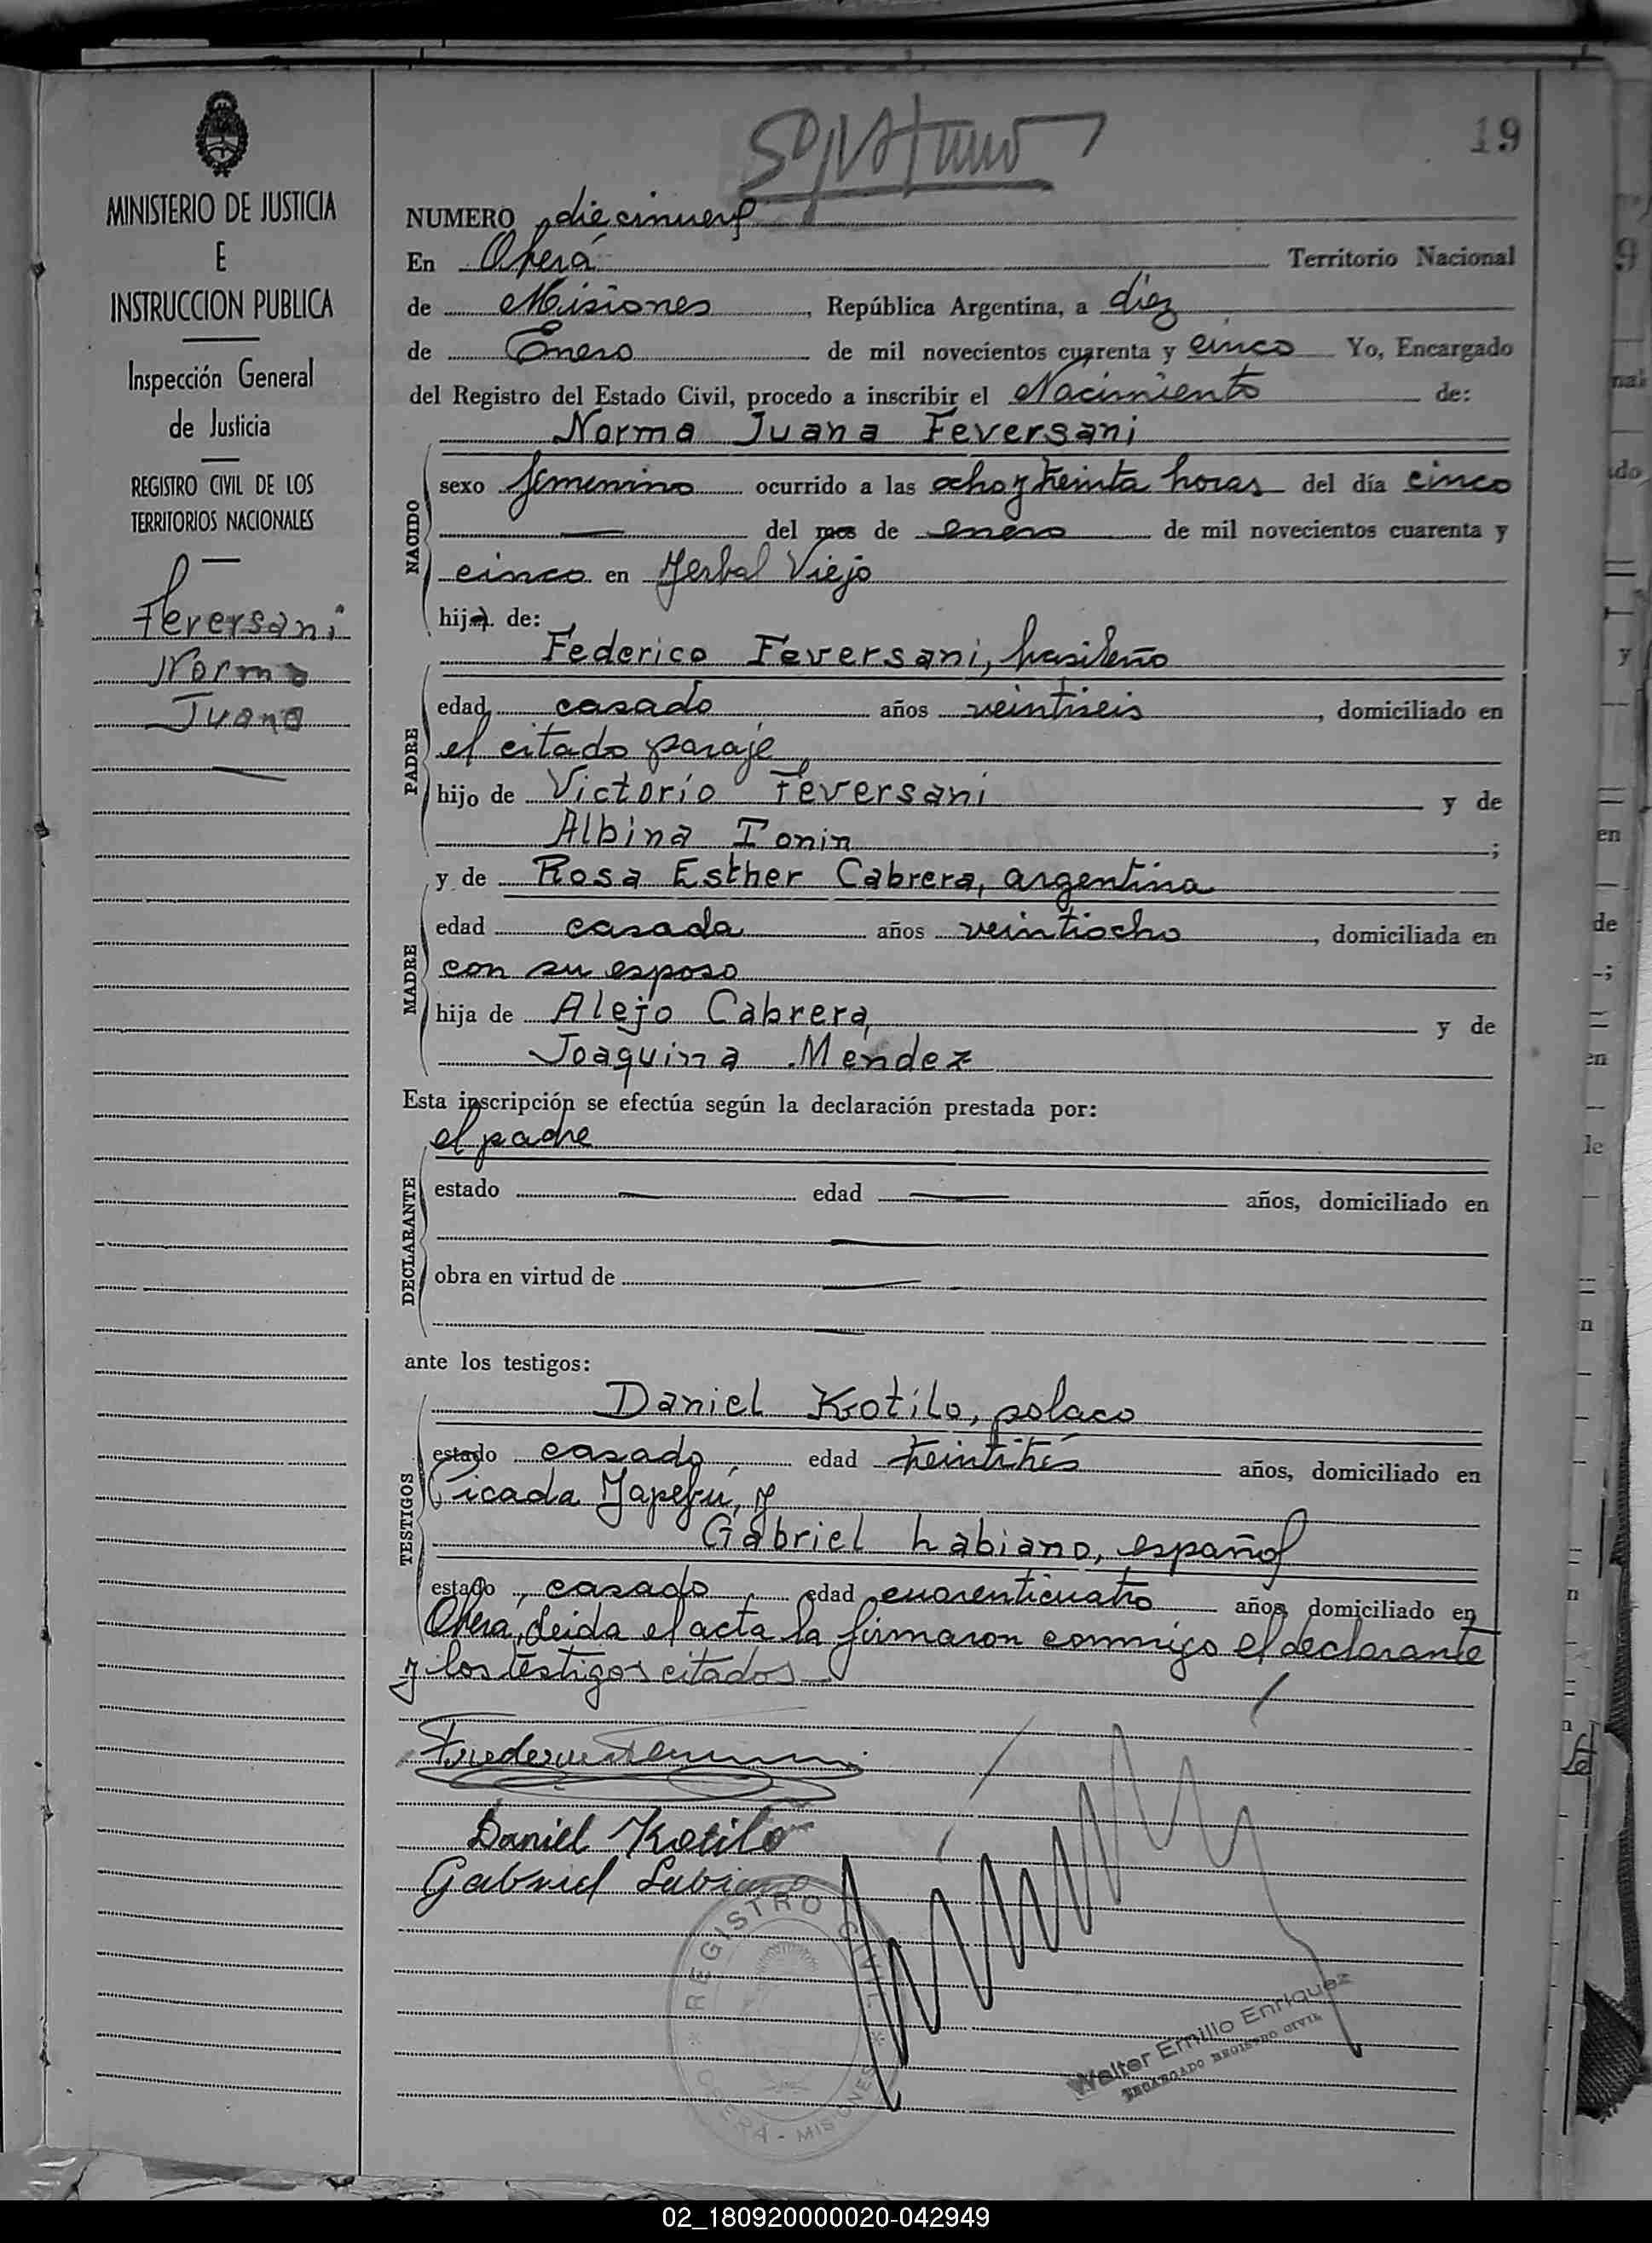 19
MINISTERIO DE JUSTICIA
E
INSTRUCCION PUBLICA
Inspección General
de Justicia
REGISTRO CIVIL DE LOS
TERRITORIOS NACIONALES
Feversani
Norma
Juana
NUMERO diecinueve
En Oberá Territorio Nacional
de Misiones, República Argentina, a diez
de Enero de mil novecientos cuarenta y cinco Yo, Encargado
del Registro del Estado Civil, procedo a inscribir el Nacimiento de:
Norma Juana Feversani
NACIDO
sexo femenino ocurrido a las ocho y treinta horas del día cinco
del mes de enero de mil novecientos cuarenta y
cinco en Yerbal Viejo
hija de:
Federico Feversani, brasileño
PADRE
edad casado años veintiseis, domiciliado en
el citado paraje
hijo de Victorio Feversani y de
Albina Tonin;
y de Rosa Esther Cabrera, argentina
MADRE
edad casada años veintiocho, domiciliada en
con su esposo
hija de Alejo Cabrera, y de
Joaquina Mendez
Esta inscripción se efectúa según la declaración prestada por:
el padre
DECLARANTE
estado edad años, domiciliado en
obra en virtud de
ante los testigos:
Daniel Kotilo, polaco
TESTIGOS
estado casado, edad treintitrés años, domiciliado en
Picada Yapeyú, y
Gabriel Labiano, español
estado, casado edad cuarenticuatro años, domiciliado en
Obera, leida el acta la firmaron conmigo el declarante
y los testigos citados
Daniel Kotilo
Gabriel Labiano
REGISTRO CIVIL
OBERA - MISIONES
Walter Emilio Enriquez
ENCARGADO REGISTRO CIVIL
02_180920000020-042949